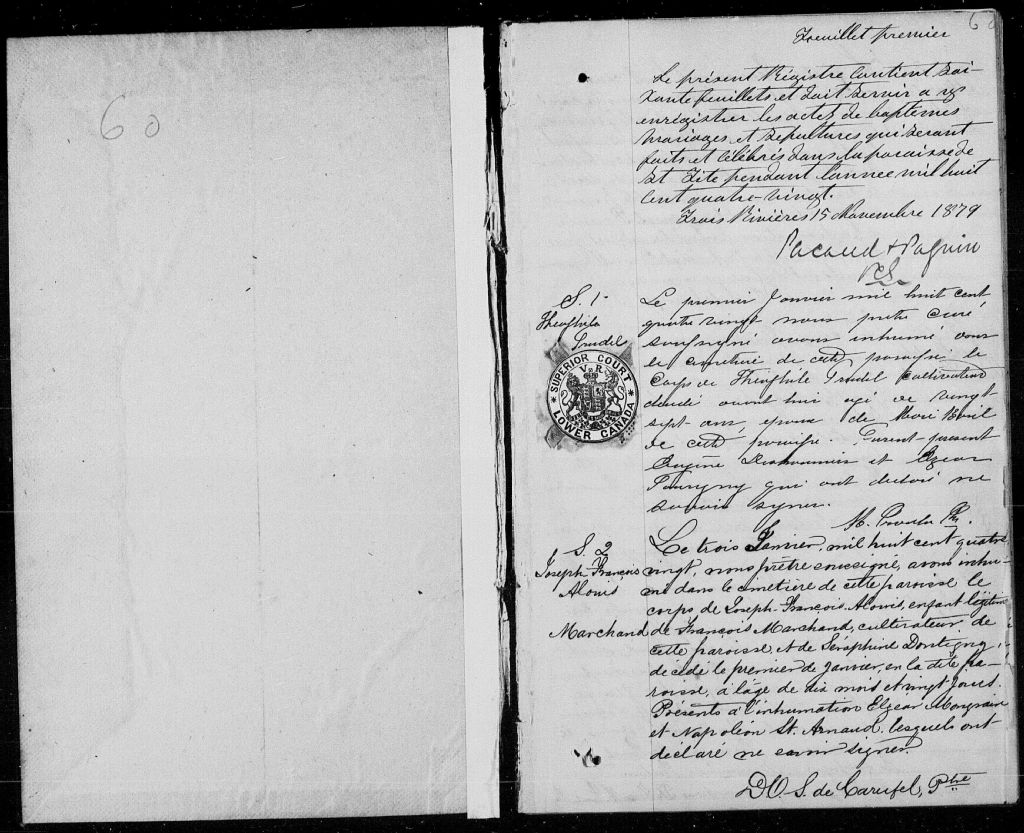 60
60
Feuillet premier
Le présent Régistre contient Soi-
xante feuillets et doit servir a y
enrégistrer les actes de baptêmes
mariages et sépultures qui seront
faits et célébrés dans la paroisse de
St Tite pendant l'annee mil huit
cent quatre-vingt.
Trois Rivières 15 Novembre 1879
Pacaud & Paquin
S. 1
Théophile
Trudel
SUPERIOR COURT
V R
LOWER CANADA
Le premier Janvier mil huit cent
quatre vingt nous prêtre curé
soussigné avons inhumé dans
le cimetière de cette paroisse le
corps de Théophile Trudel cultivateur
décédé avant hier agé de vingt-
sept ans, epoux de Marie
de cette paroisse. Furent présent
Eugène et Elzear
qui ont déclaré ne
savoir signer.
M. Proulx Ptre.
S. 2
Joseph-François
Alouis
Marchand
Le trois Janvier, mil huit cent quatre
vingt, nous prêtre soussigné, avons inhu-
mé dans le cimetière de cette paroisse le
corps de Joseph-François-Alouis, enfant légitime
de François Marchand, cultivateur de
cette paroisse, et de Séraphine Dontigny,
décédé le premier de janvier, en la dite pa-
roisse, à l'âge de dix mois et vingt jours.
Présents à l'inhumation Elzear Mongrain
et Napoléon St. Arnaud, lesquels ont
déclaré ne savoir signer.
D.O.S. de Carufel, Ptre